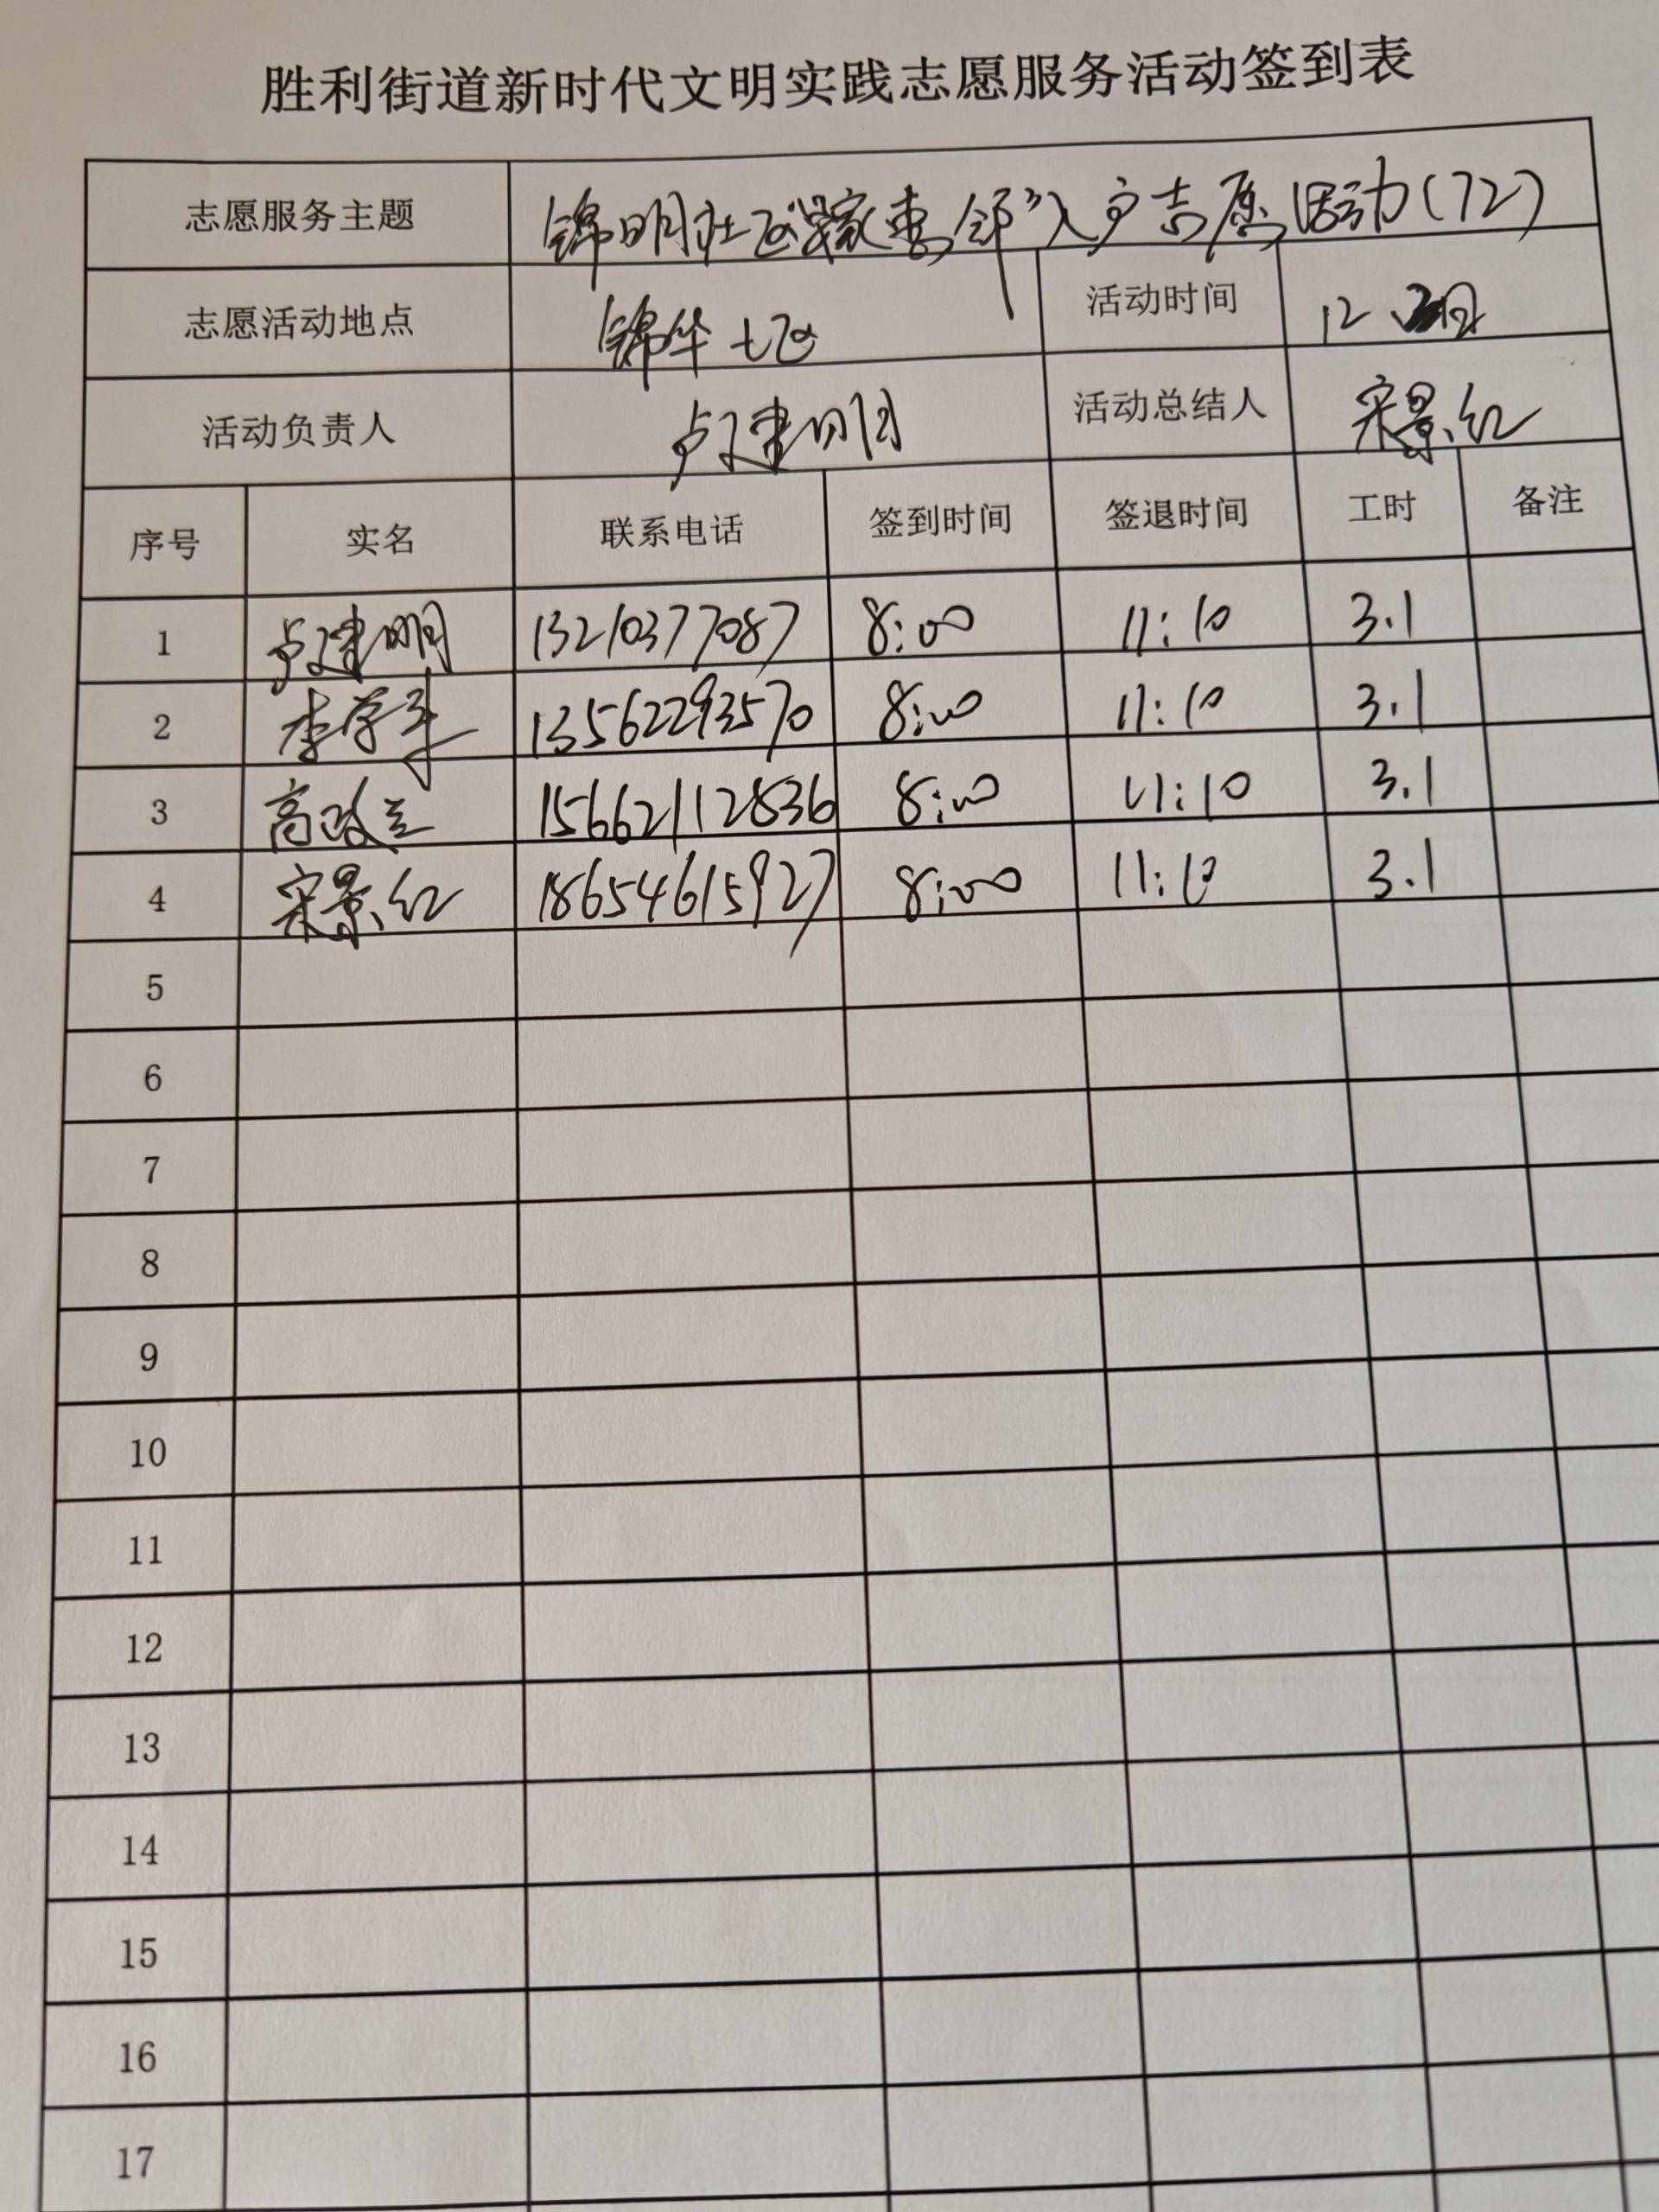 胜利街道新时代文明实践志愿服务活动签到表
志愿服务主题 锦明社区“ 家惠邻”入户志愿活动(72)
志愿活动地点 锦华七区 活动时间 12.
活动负责人 卢建明 活动总结人 宋景红
序号 实名 联系电话 签到时间 签退时间 工时 备注
1 卢建明 13210377087 8:00 11:10 3.1
2 李学军 13562293570 8:00 11:10 3.1
3 高政兰 15662112836 8:00 11:10 3.1
4 宋景红 18654615927 8:00 11:10 3.1
5
6
7
8
9
10
11
12
13
14
15
16
17